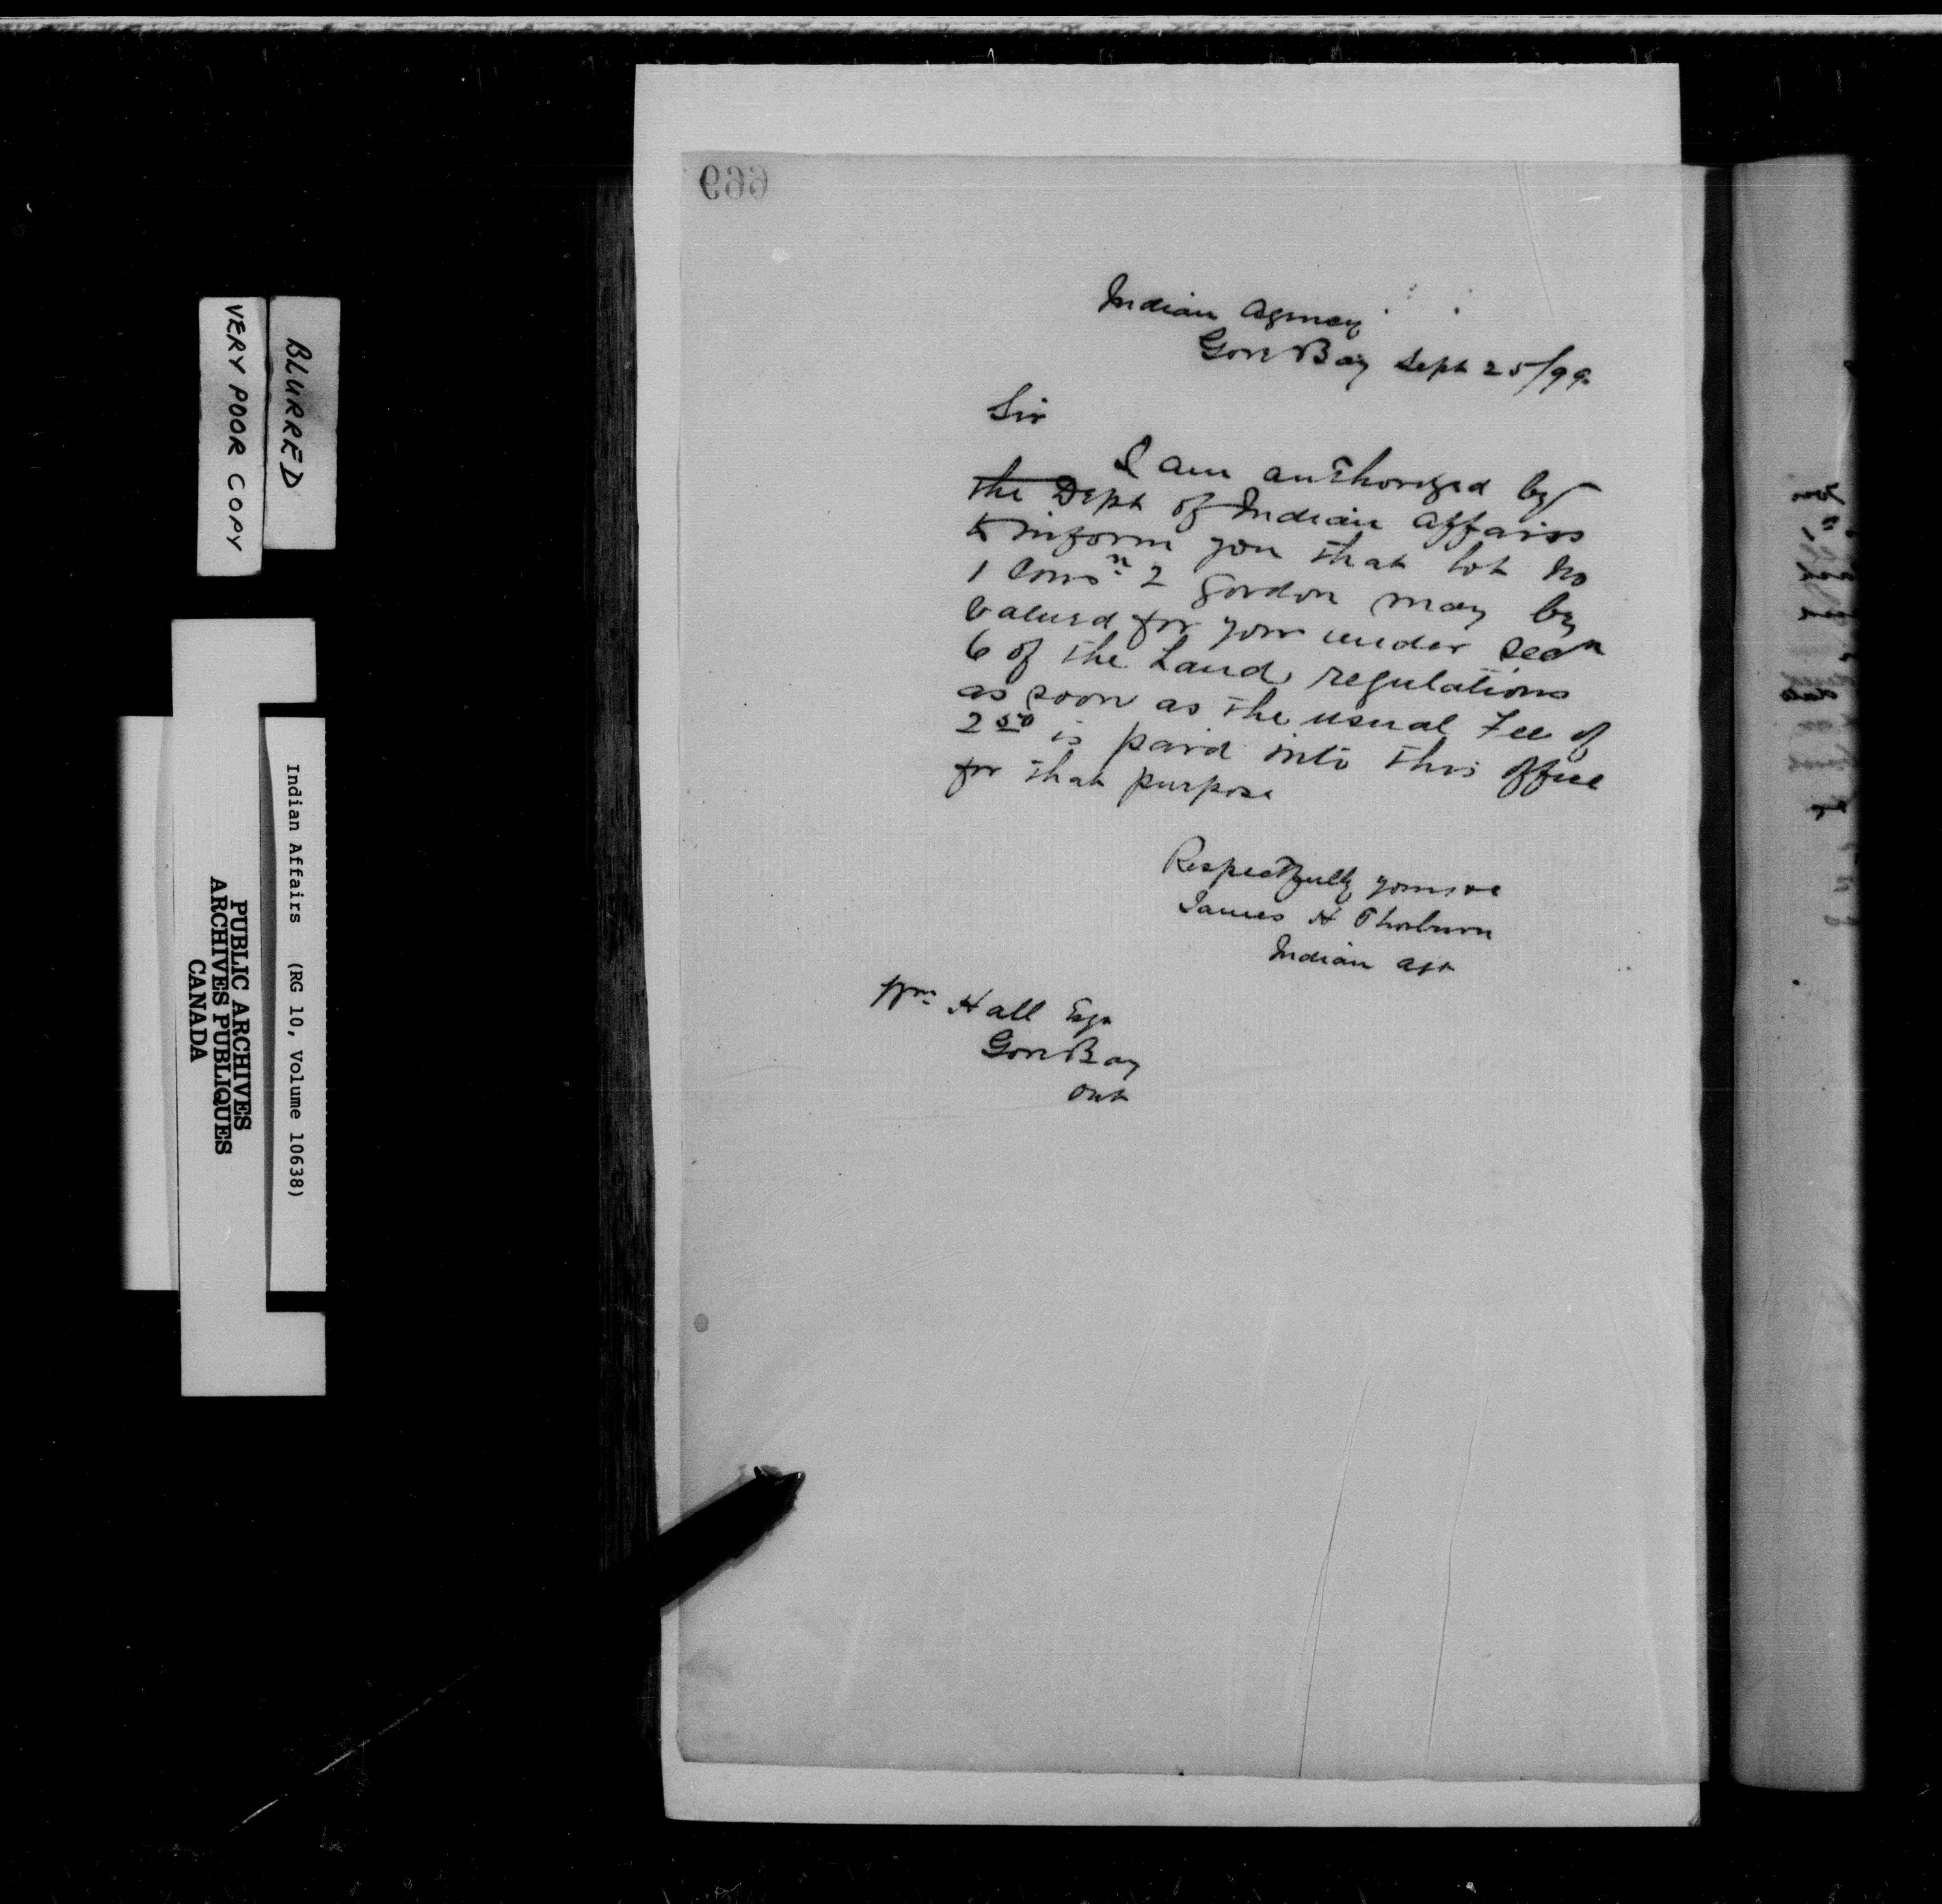 669
Indian Agency
Gore Bay Sept 25/99
Sir
I am authorized by
the Dept of Indian Affairs
to inform you that Lot No
1 Consn 2 Gordon may be
valued for you under Secn
6 of the Land regulations
as soon as the usual Fee of
2 50 is paid into this office
for that purpose
Respectfully yours
James H Thorburn
Indian Agt
Wm Hall Esqr
Gore Bay
Ont
BLURRED
VERY POOR COPY
Indian Affairs (RG 10, Volume 10638)
PUBLIC ARCHIVES
ARCHIVES PUBLIQUES
CANADA